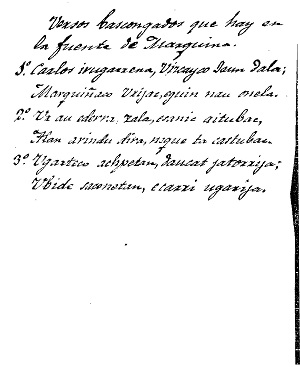 Versos bascongados que hay en
la fuente de Marquina.
1º Carlos irugarrena, Vizcayco Jaun dala;
Marquiñaco Veijac, eguin nau onela.
2º Ur au ederra zala, esanic aitubac,
Han arindu dira, neque ta castubac.
3º Ugarteco achpetan, daucat jatorrija;
Ubide saconetan, ecarri ugarija.